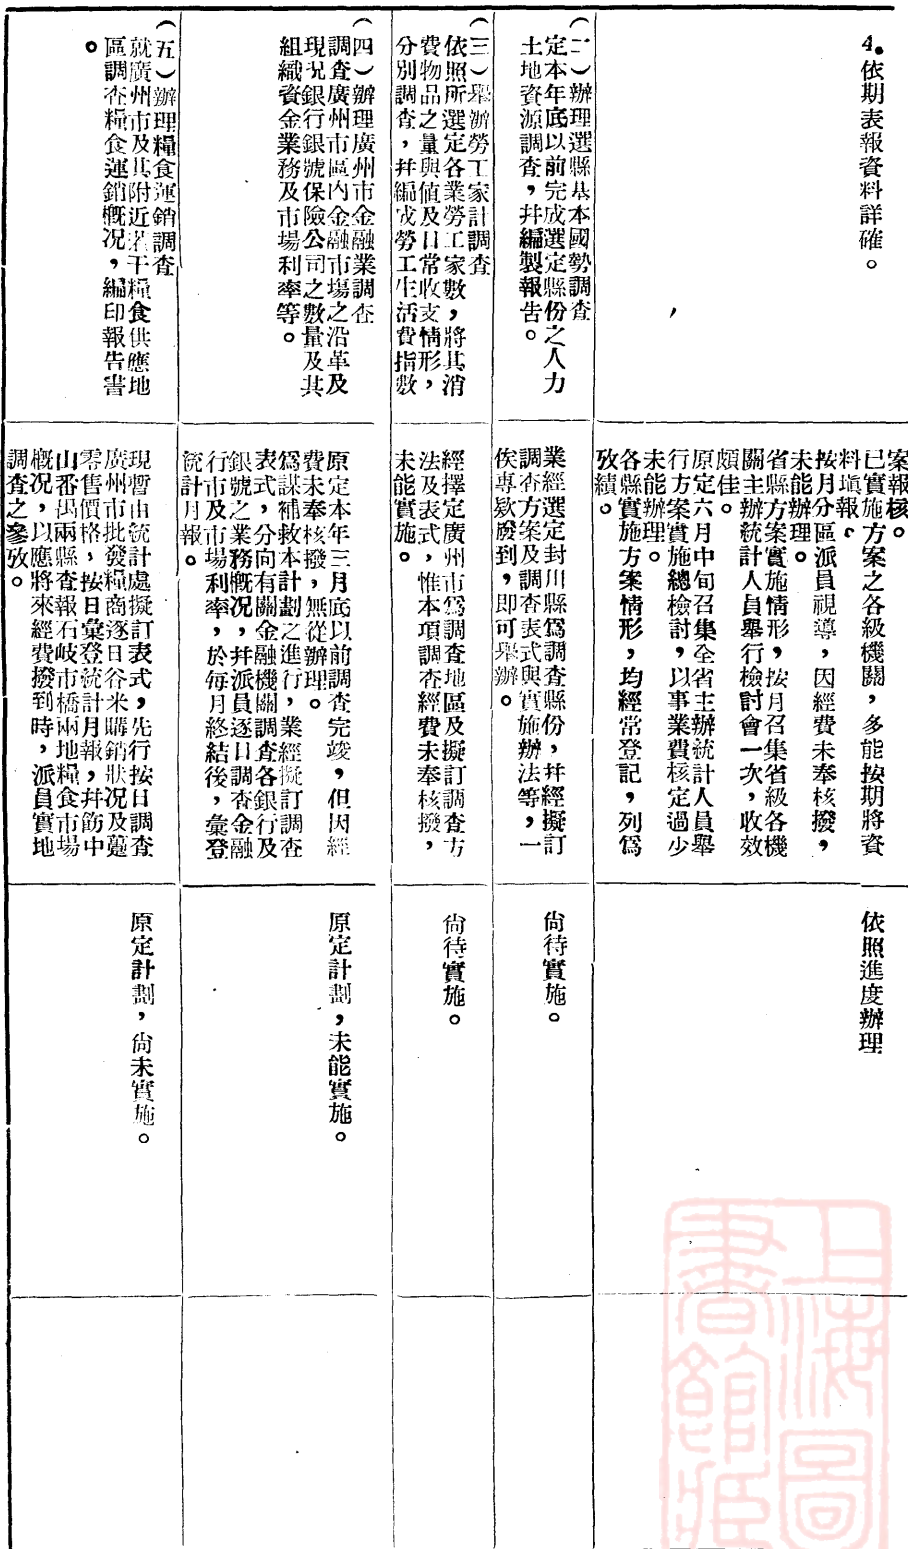 4.依期表報資料詳確。
案報核。
已實施方案之各級機關，多能按期將資
料塡報。
按月分區派員視導，因經費未奉核撥，
未能辦理。
省縣方案實施情形，按月召集省級各機
關主辦統計人員舉行檢討會一次，收效
頗佳。
原定六月中旬召集全省主辦統計人員舉
行方案實施總檢討，以事業費核定過少
未能辦理。
各縣實施方案情形，均經常登記，列爲
攷績。
依照進度辦理
（二）辦理選縣基本國勢調查
定本年底以前完成選定縣份之人力
土地資源調查，幷編製報告。
業經選定封川縣爲調查縣份，幷經擬訂
調查方案及調查表式與實施辦法等，一
俟專欵撥到，即可舉辦。
尙待實施。
（三）舉辦勞工家計調查
依照所選定各業勞工家數，將其消
費物品之量與值及日常收支情形，
分別調查，幷編成勞工生活費指數
經擇定廣州市爲調查地區及擬訂調查方
法及表式，惟本項調查經費未奉核撥，
未能實施。
尙待實施。
（四）辦理廣州市金融業調查
調查廣州市區內金融市場之沿革及
現况銀行銀號保險公司之數量及其
組織資金業務及市場利率等。
原定本年三月底以前調查完竣，但因經
費未奉核撥，無從辦理。
爲謀補救本計劃之進行，業經擬訂調查
表式，分向有關金融機關調查各銀行及
銀號之業務槪况，幷派員逐日調查金融
行市及市場利率，於每月終結後，彙登
統計月報。
原定計劃，未能實施。
（五）辦理糧食運銷調查
就廣州市及其附近若干糧食供應地
區調查糧食運銷槪况，編印報告書
。
現暫由統計處擬訂表式，先行按日調查
廣州市批發糧商逐日谷米購銷狀况及躉
零售價格，按日彙登統計月報，幷飭中
山番禺兩縣查報石岐市橋兩地糧食市場
槪况，以應將來經費撥到時，派員實地
調查之參攷。
原定計劃，尙未實施。
上海圖
書館藏